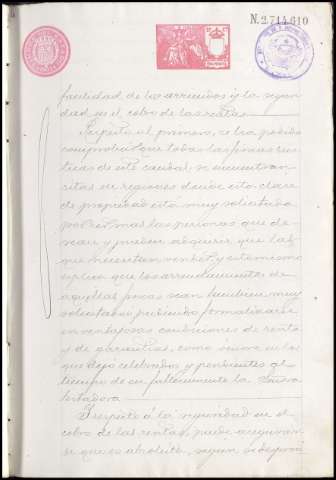 N.2.714.610
facilidad de los arriendos y la seguri
dad en el cobro de las rentas.
Respecto al primero, se ha podido
comprobar que todas las fincas rús
ticas de este caudal se encuentran
sitas en regiones donde esta clase
de propiedad está muy solicitada
son mas las personas que de
sean y pueden adquirir que las
que necesitan vender, y esto mismo
explica que los arrendamientos de
aquellas fincas sean tambien muy
solicitados pudiendo formalizarse
en ventajosas condiciones de renta
y de garantías, como fueron los
que dejó celebrados y pendientes al
tiempo de su fallecimiento la Señora
testadora.
Respecto á la seguridad en el
cobro de las rentas, puede asegurar
se que es absoluta, segun se despren